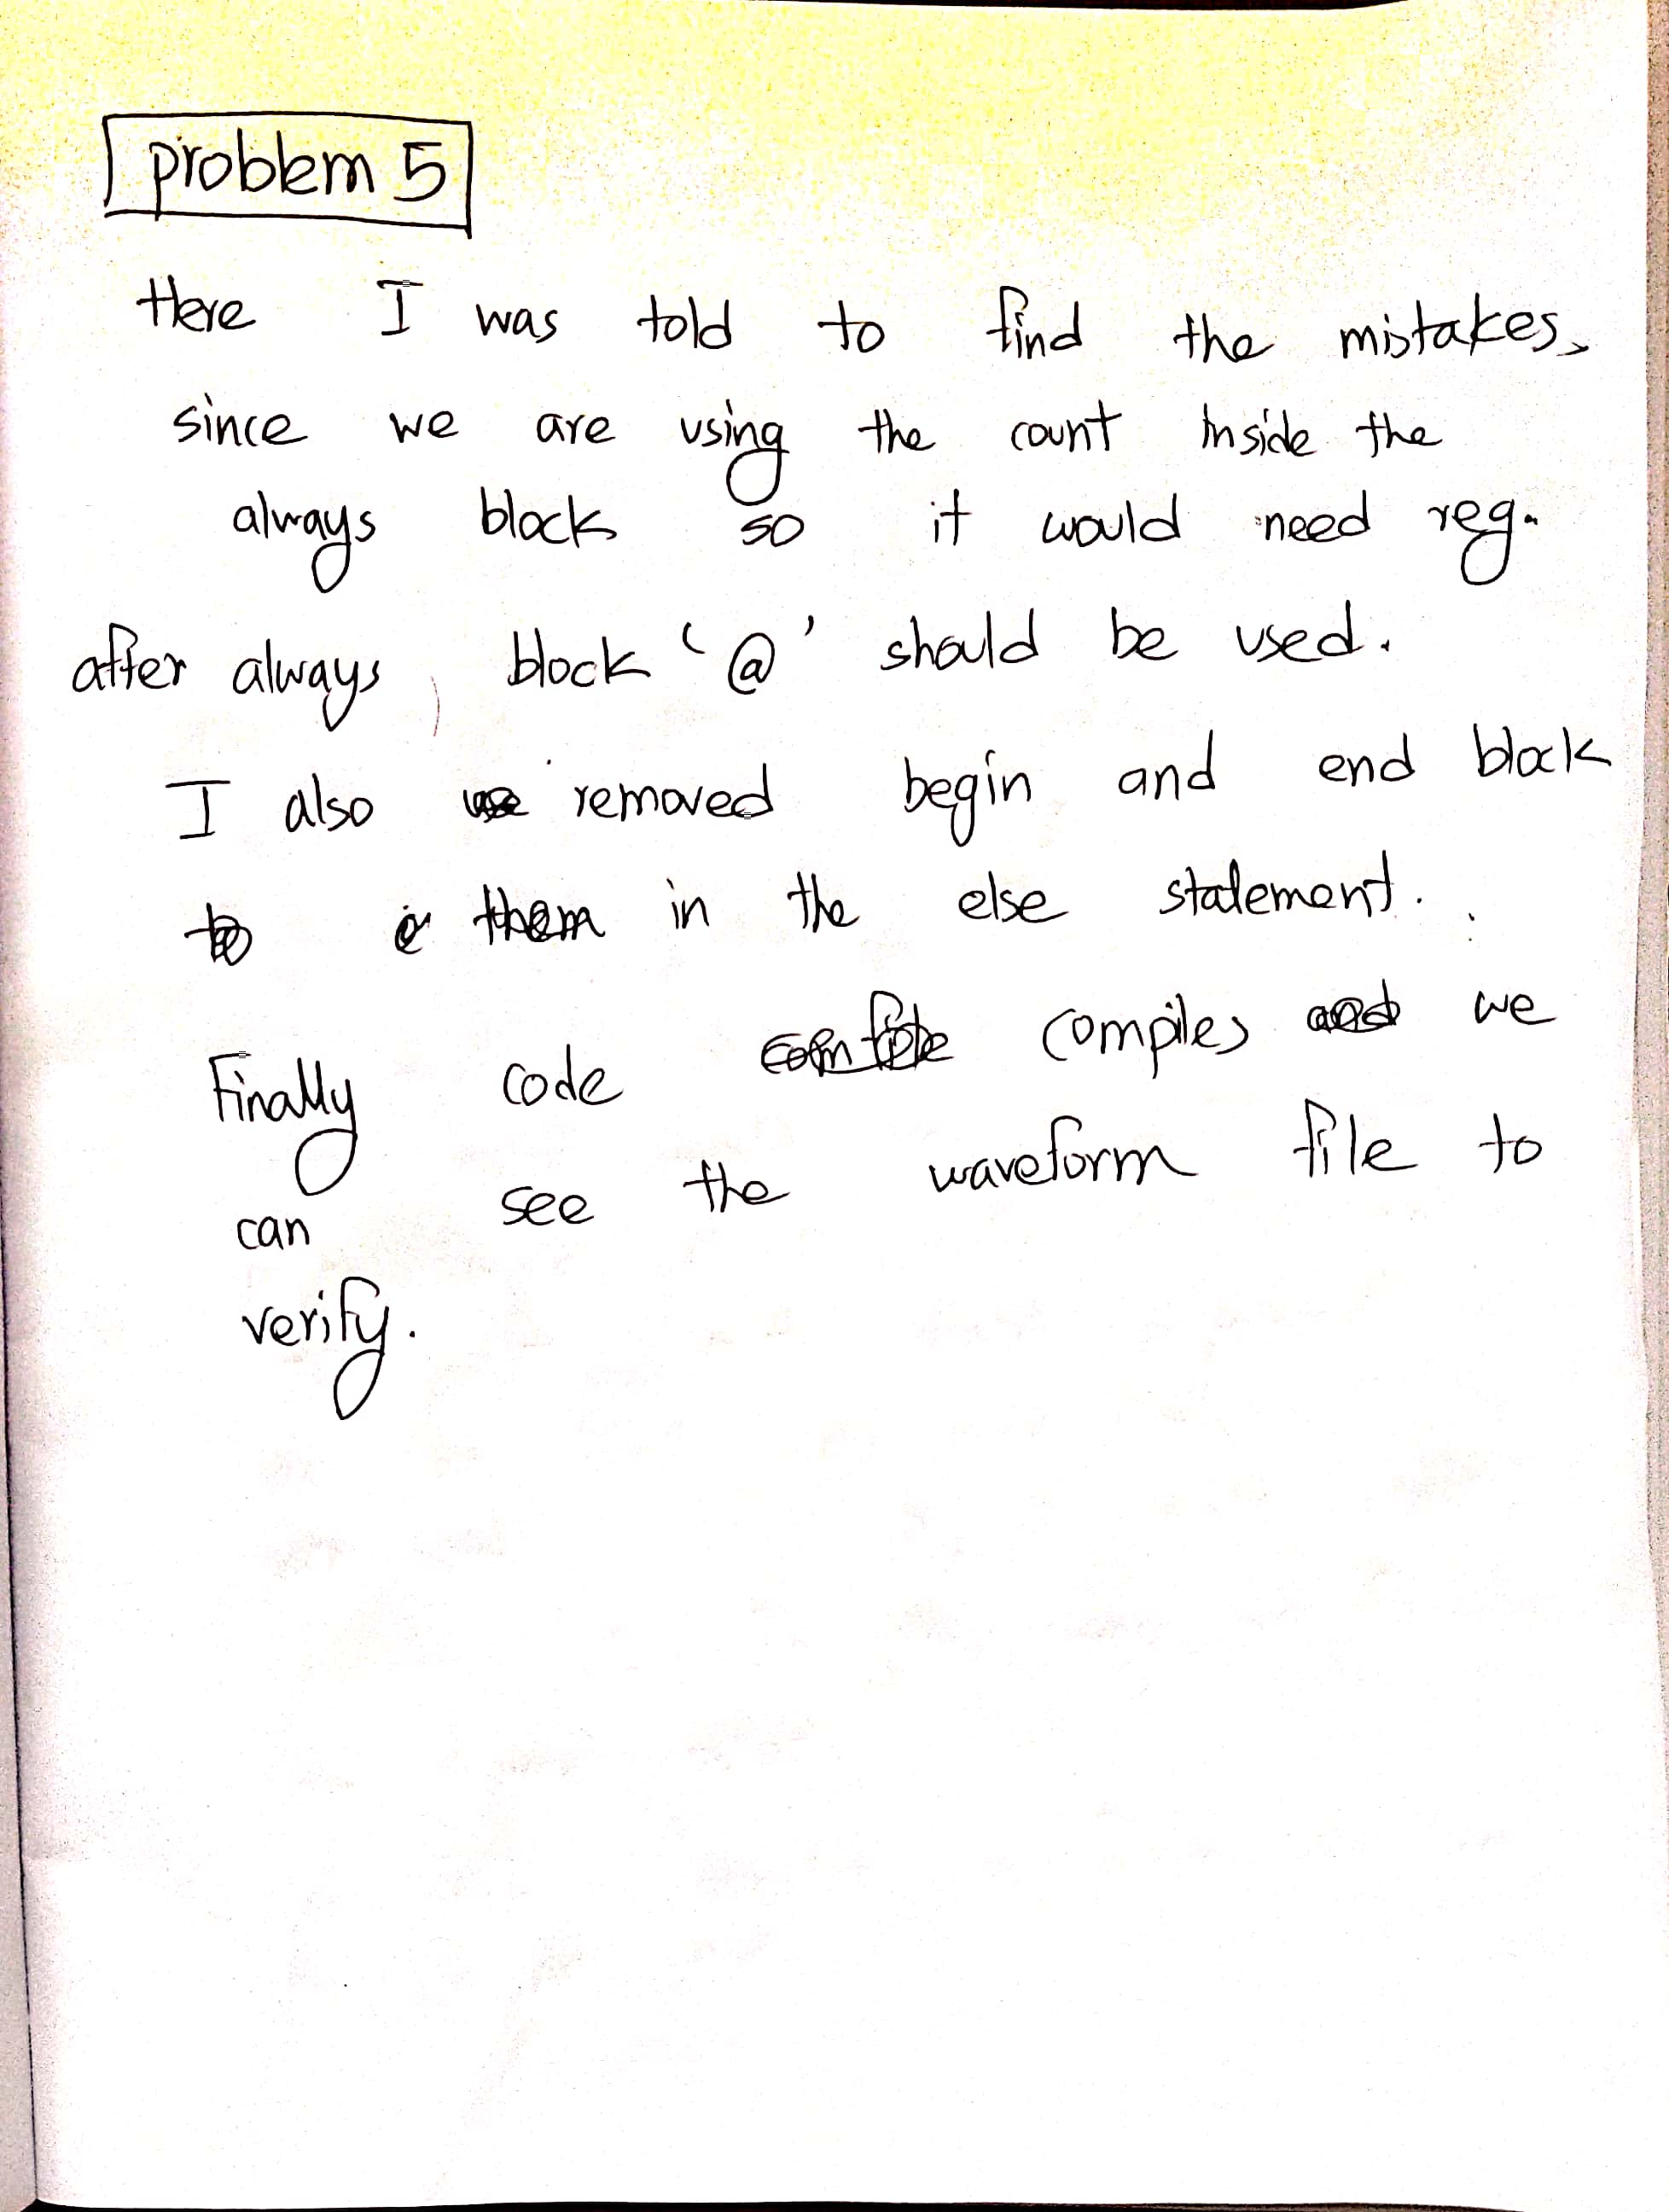 problem 5
Here I was told to find the mistakes,
since we are using the count inside the
always block so it would need reg.
after always, block '@' should be used.
I also removed begin and end block
in the else statement.
Finally code compiles we
can see the waveform file to
verify.